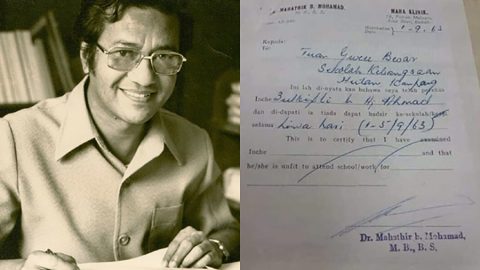 DR. MAHATHIR B. MOHAMAD,
M. B., B. S.
MAHA KLINIK,
1-9.63
Kapada:
Tuan Guru Besar
Sekolah Kebangsaan
Hutan Kampong
Ini lah di-nyata kan bahawa saya telah pereksa
Inche Zulkifli b. Hj Ahmad
dan di-dapati ia tiada dapat hadzir ke-sekolah/kerja
selama Lima hari (1-5/9/63)
This is to certify that I have examined
Inche and that
he/she is unfit to attend school/work for
Dr. Mahathir b. Mohamad,
M. B., B. S.